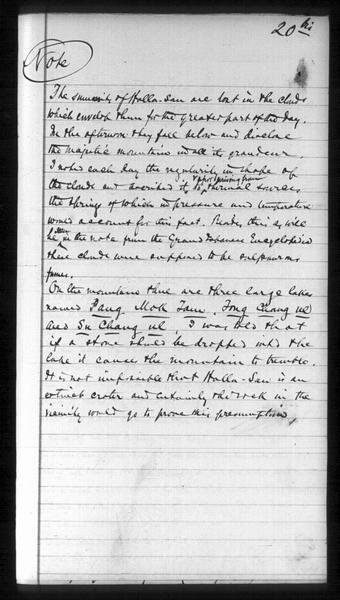 20 bis
Note
The summits of Halla-San are lost in the clouds
which envelop them for the greater part of the day.
In the afternoon they fall below and disclose
the majestic mountains in all its grandeur.
I noted each day the regularity in shape of
the clouds and ascribed it to thermal sources
the springs of which in pressure and temperature
would account for this fact. Besides this as will
be seen in the note from the Grand Japanese Encyclopedia
these clouds were supposed to be sulphurous
fumes.
On the mountains there are three large lakes
named Pang Mok Tam, Tong Chang ul
and Su Chang ul. I was told that
if a stone should be dropped into the
lake it cause the mountain to tremble.
It is not impossible that Halla-San is an
extinct crater and certainly the rock in the
vicinity would go to prove this presumption.